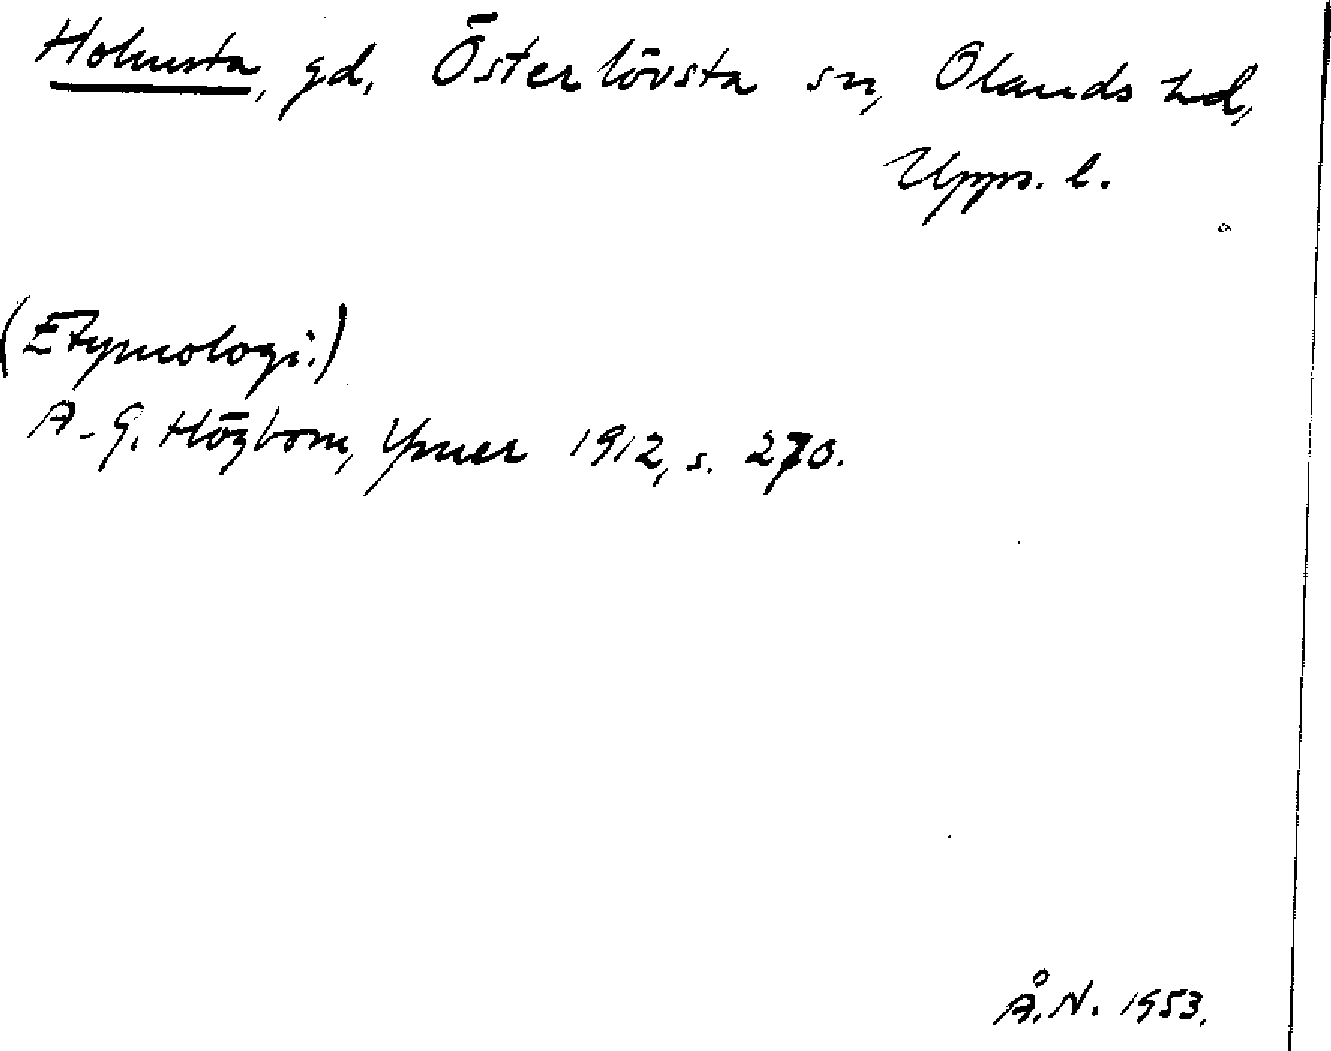 Holmsta, gd, Österlövsta sn, Olands hd,
Upps. l.
(Etymologi:)
A. G. Högbom, Ymer 1912, s. 270.
Å. N. 1953.